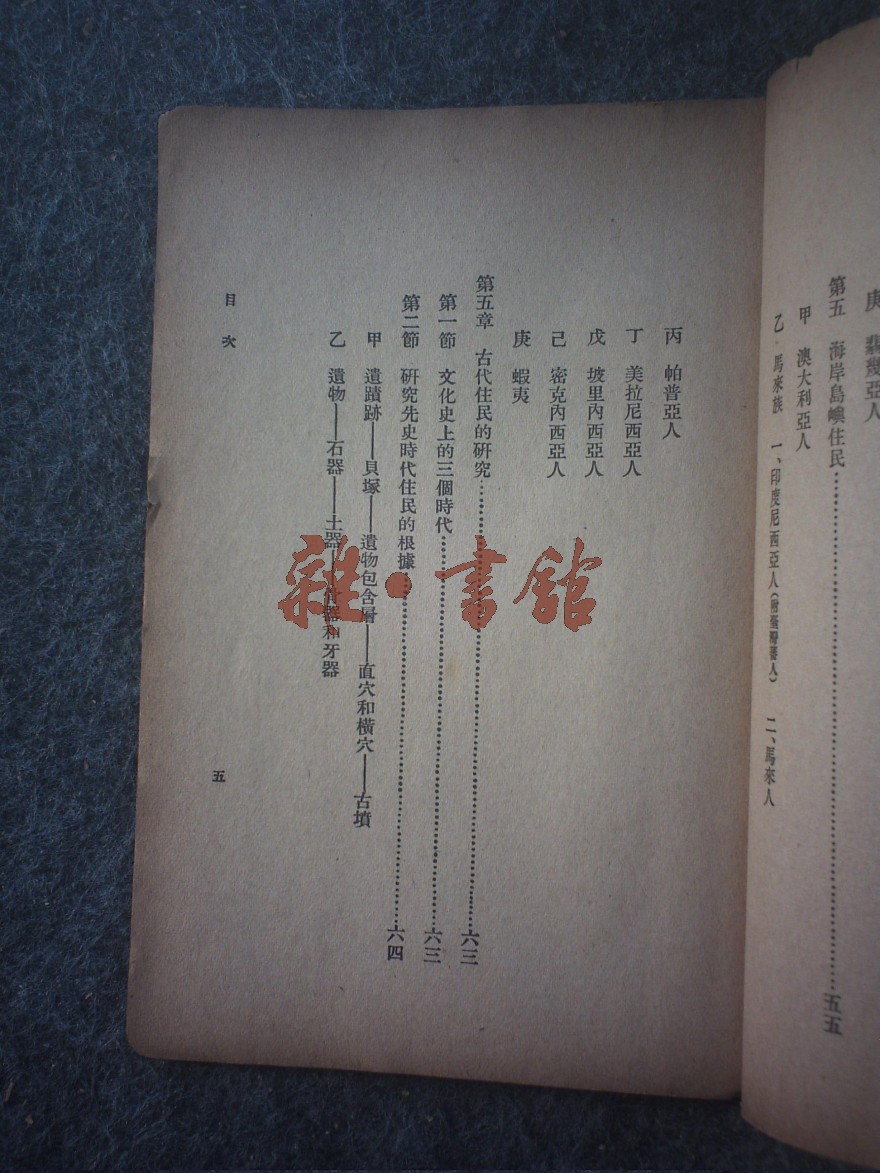 庚
第五　海岸島嶼住民……五五
甲　澳大利亞人
乙　馬來族　一、印度尼西亞人　二、馬來人
丙　帕普亞人
丁　美拉尼西亞人
戊　坡里內西亞人
己　密克內西亞人
庚　蝦夷
第五章　古代住民的研究……六三
第一節　文化史上的三個時代……六三
第二節　研究先史時代住民的根據……六四
甲　遺蹟跡——貝塚——遺物包含層——直穴和橫穴——古墳
乙　遺物——石器——土器——骨器和牙器
目次
五
雜·書館